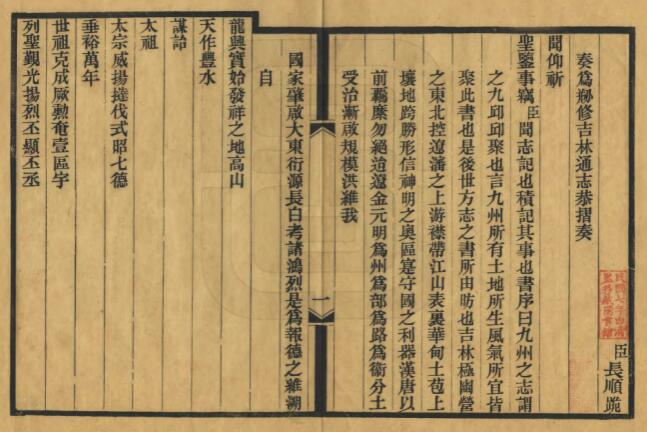 臣長順跪
奏爲刱修吉林通志恭摺奏
聞仰祈
聖鑒事竊臣聞志記也積記其事也書序曰九州之志謂
之九邱邱聚也言九州所有土地所生風氣所宜皆
聚此書也是後世方志之書所由昉也吉林極幽營
之東北控遼瀋之上游襟帶江山表裏華甸土苞上
壤地跨勝形信神明之奧區寔守國之利器漢唐以
前羈縻勿絕迨遼金元明爲州爲部爲路爲衞分土
受治漸啟規模洪維我
國家肇啟大東衍源長白考諸鴻烈是爲報德之維溯
自
龍興實始發祥之地高山
天作豐水
謀詒
太祖
太宗威揚撻伐式昭七德
垂裕萬年
世祖克成厥勳奄壹區宇
列聖覲光揚烈丕顯丕丞
一